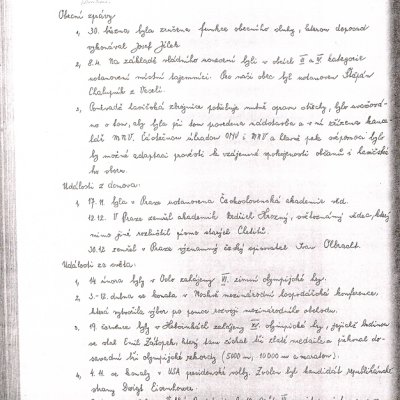 Obecní zprávy:
1, 30. března byla zrušena funkce obecního sluhy, kterou doposud
vykonával Josef Jílek.
2, 8.4. Na základě vládního nařízení byli v obcích II a VI kategorie
ustanoveni místní tajemníci. Pro naši obec byl ustanoven Štěpán
Chalupník z Veselí.
3, Poněvadž hasičská zbrojnice potřebuje nutně opravu střechy, bylo uvažová-
no o tom, aby byla při tom provedena nádstavba a v ní zřízena kance
lář MNV. Částečnou úhradou ONV i MNV a hlavně pak svépomocí bylo
by možné adaptaci provésti ke vzájemné spokojenosti občanů i hasičské-
ho sboru.
Události z domova:
1, 17.11. byla v Praze ustanovena Československá akademie věd.
12.12. V Praze zemřel akademik Bedřich Hrozný, světoznámý vědec, který
mimo jiné rozluštil písmo starých Chetitů.
30.12. zemřel v Praze významný český spisovatel Ivan Olbracht.
Události ze světa:
1, 14 února byly v Oslo zahájeny VI. zimní olympijské hry.
2, 3.-12. dubna se konala v Moskvě mezinárodní hospodářská konference,
která vytvořila výbor pro pomoc rozvoji mezinárodního obchodu.
3, 19. července byly v Helsinkách zahájeny XV. olympijské hry, jejichž hrdinou
se stal Emil Zátopek, který tam získal tři zlaté medaile a překonal do-
savadní tři olympijské rekordy (5000 m, 10 000 m a maraton).
4, 4.11. se konaly v USA presidentské volby. Zvolen byl kandidát republikánské
strany Dwight Eisenhower.